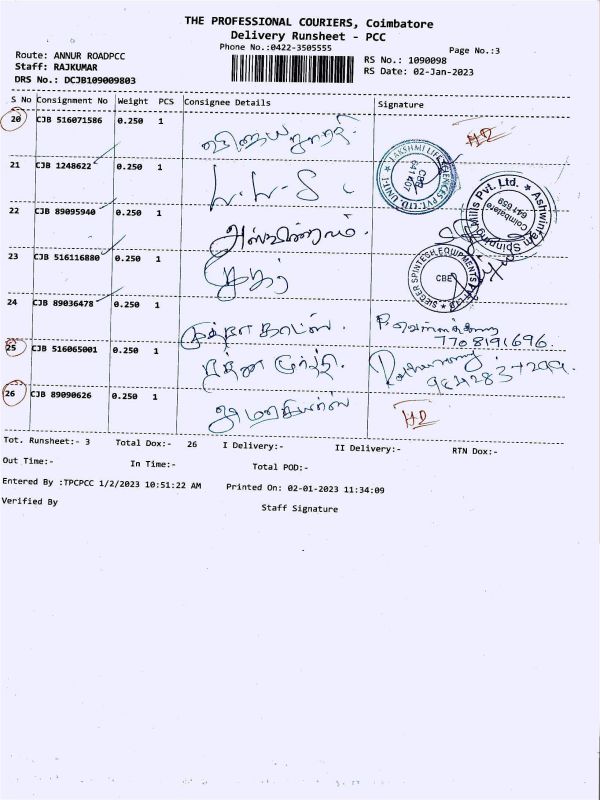 THE PROFESSIONAL COURIERS, Coimbatore
Delivery Runsheet - PCC
Phone No.:0422-3505555
Page No.:3
Route: ANNUR ROADPCC
Staff: RAJKUMAR
DRS No.: DCJB109009803
RS No.: 1090098
RS Date: 02-Jan-2023
S No Consignment No Weight PCS Consignee Details Signature
20 CJB 516071586 0.250 1 HD
21 CJB 1248622 0.250 1 L.L.S
LAKSHMI LIFE SCIENCES PVT. LTD., UNIT-I CBE 641 407
22 CJB 89095940 0.250 1
Ashwintam Spinning Mills Pvt. Ltd. Coimbatore 641 659
23 CJB 516116880 0.250 1
SIEGER SPINTECH EQUIPMENTS PVT LTD CBE
24 CJB 89036478 0.250 1
7708191696.
25 CJB 516065001 0.250 1
26 CJB 89090626 0.250 1 HD
Tot. Runsheet:- 3 Total Dox:- 26 I Delivery:- II Delivery:- RTN Dox:-
Out Time:- In Time:- Total POD:-
Entered By :TPCPCC 1/2/2023 10:51:22 AM Printed On: 02-01-2023 11:34:09
Verified By Staff Signature